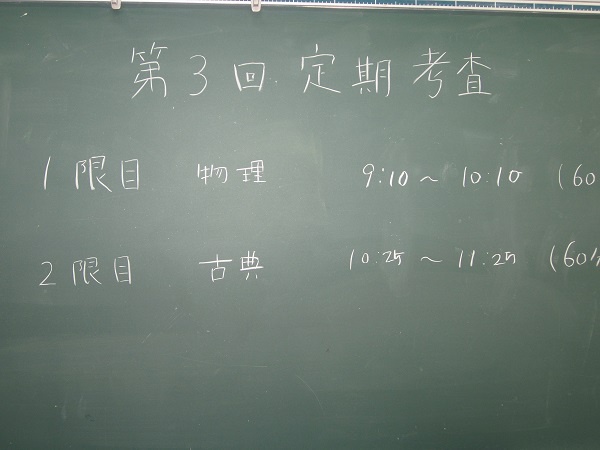 第3回定期考査
1限目 物理 9:10～10:10 (60
2限目 古典 10:25～11:25 (60分